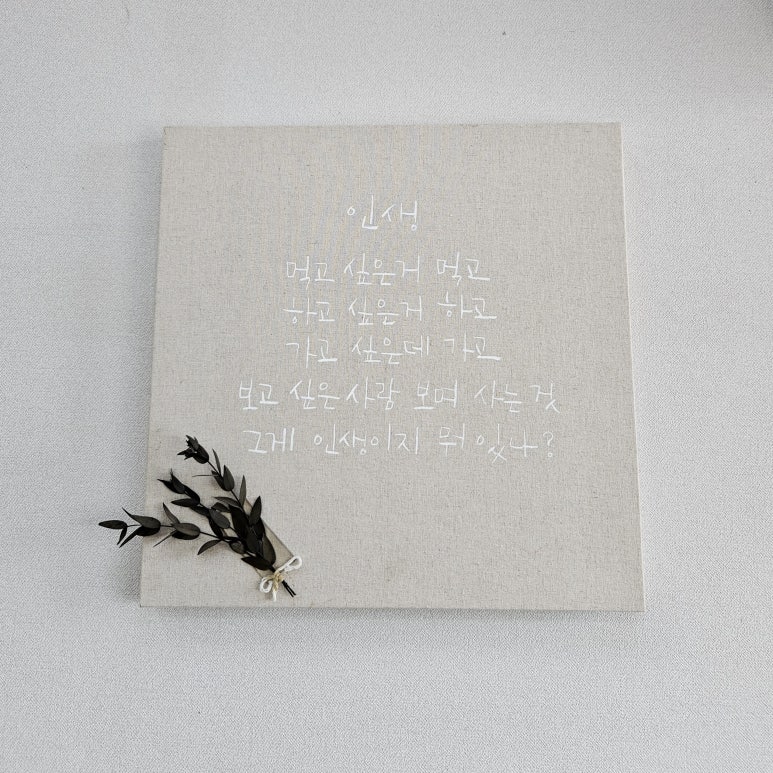 인생
먹고 싶은거 먹고
하고 싶은거 하고
가고 싶은데 가고
보고 싶은사람 보며 사는것
그게 인생이지 뭐있나?